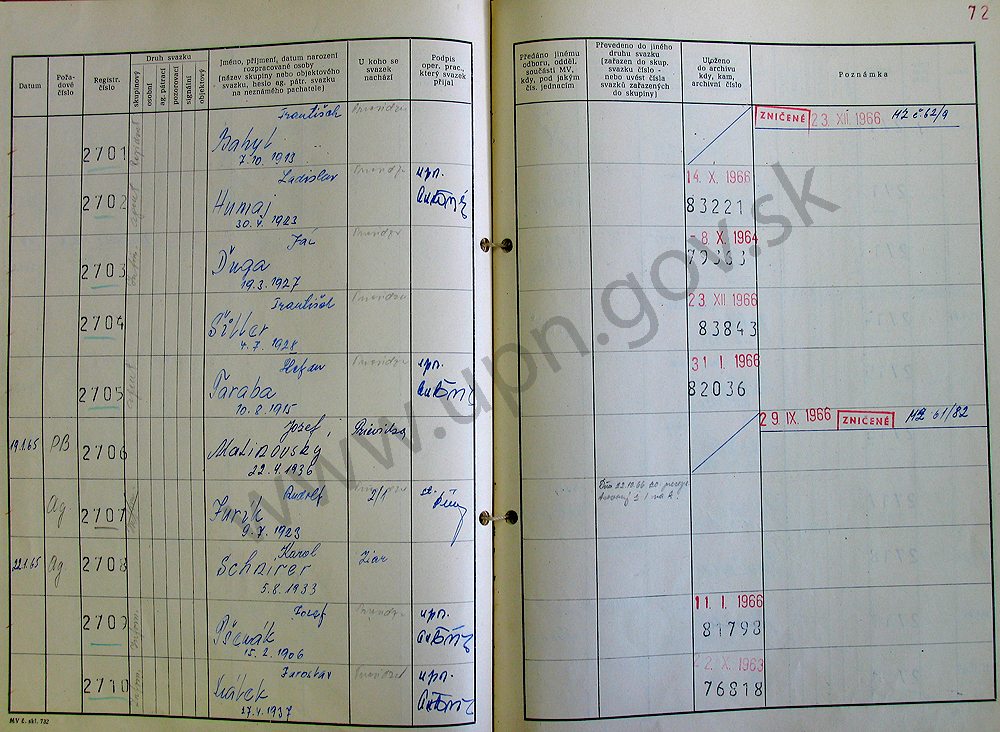 72
Datum
Pořadové číslo
Registr. číslo
Druh svazku
skupinový
osobní
ag. pátrací
pozorovací
signální
objektový
Jméno, příjmení, datum narození
rozpracované osoby
(název skupiny nebo objektového
svazku, heslo ag. pátr. svazku
na neznámého pachatele)
U koho se
svazek
nachází
Podpis
oper. prac.,
který svazek
přijal
Předáno jinému
odboru, odděl.
součásti MV,
kdy, pod jakým
čís. jednacím
Převedeno do jiného
druhu svazku
(zařazen do skup.
svazku číslo -
nebo uvést čísla
svazků zařazených
do skupiny)
Uloženo
do archivu
kdy, kam,
archivní číslo
Poznámka
2701 František
7.10.1913
ZNIČENÉ 23. XII. 1966
2702 Ladislav
Humaj
30.4.1923
upn.
14. X. 1966
83221
2703
Ďuga
19.3.1927
-8. X. 1964
79363
2704 František
Šiller
4.7.1928
23. XII 1966
83843
2705 Štefan
Taraba
10.8.1915
upn.
31. I. 1966
82036
19.1.65 PB 2706 Jozef
Malinovský
22.4.1936
Prievidza
29. IX. 1966 ZNIČENÉ MZ 61/82
Ag 2707 Rudolf
Jurík
9.7.1923
2/1
22.1.65 Ag 2708 Karol
Schnirer
5.8.1933
Žiar
2709 Jozef
Pšenák
15.2.1906
upn.
11. I. 1966
81798
2710 Jaroslav
17.4.1937
upn.
22. X. 1963
76818
MV č. skl. 782
www.upn.gov.sk